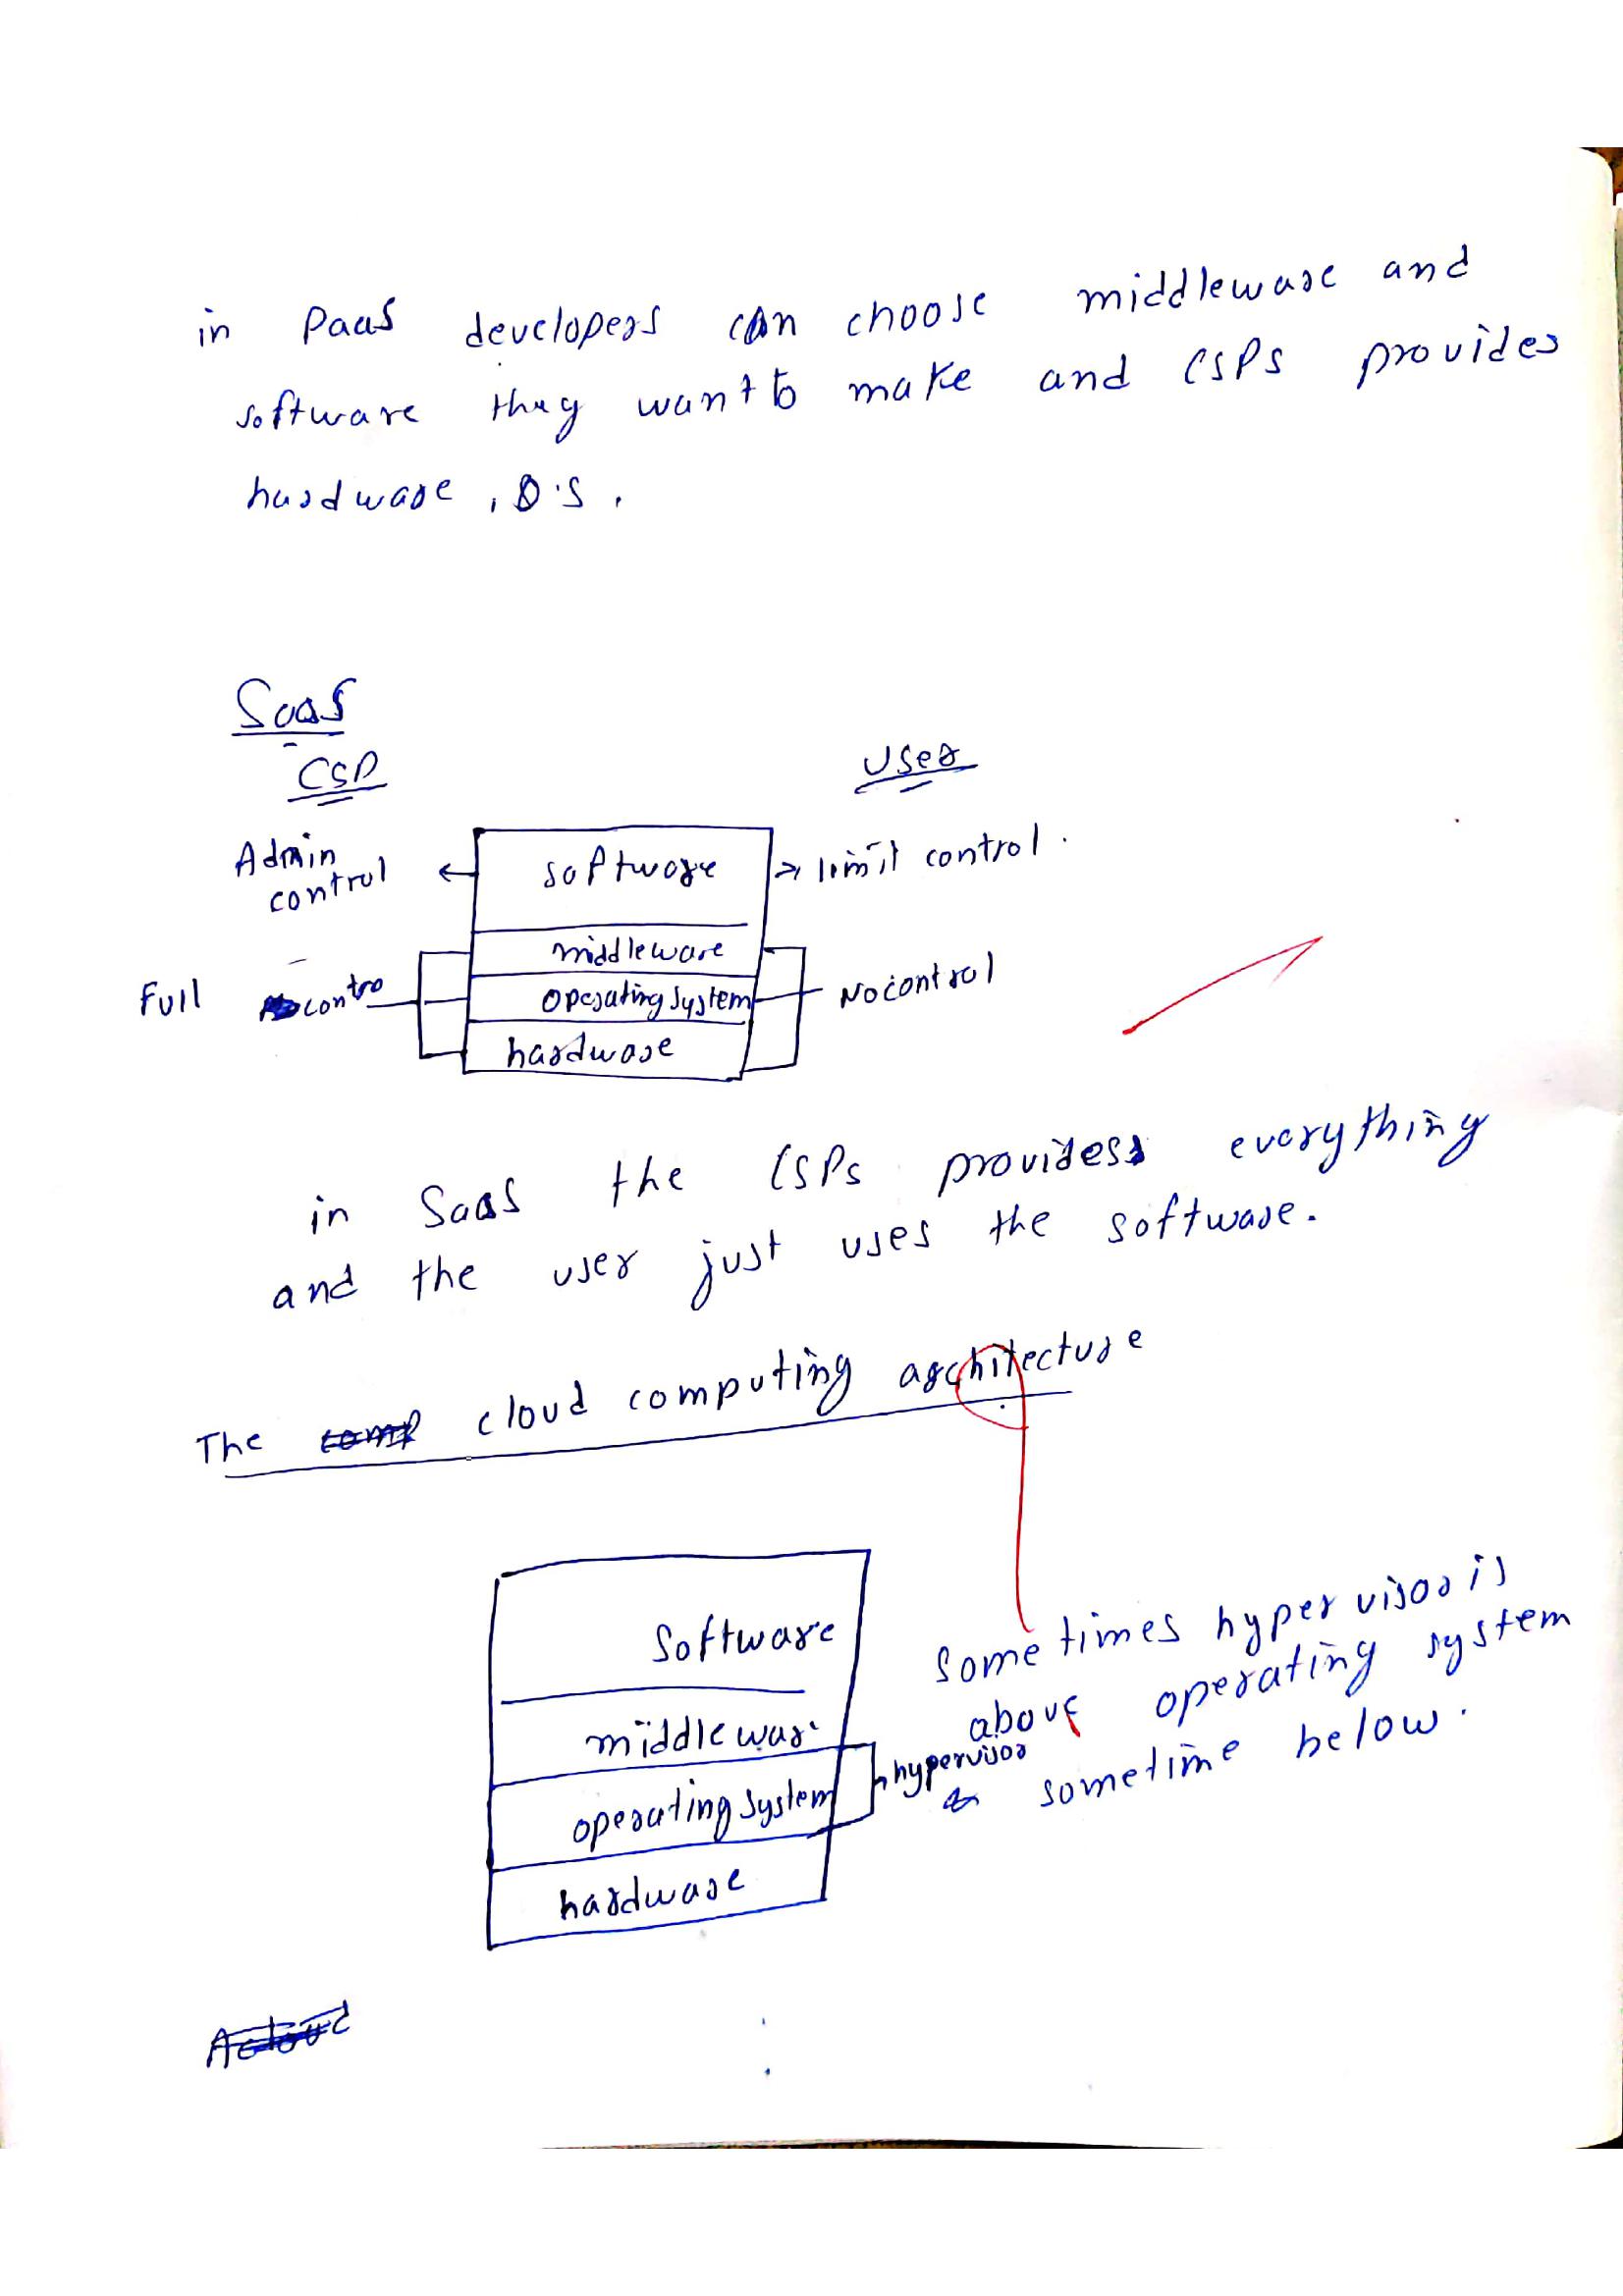 in PaaS developers can choose middleware and
software they want to make and CSPs provides
hardware, O.S.
SaaS
CSP
User
Admin
control
software
limit control.
middleware
Full contro
operating system
No control
hardware
in SaaS the CSPs provides everything
and the user just uses the software.
The cloud computing architecture
Software
middlewar
operating system
hardware
hypervisor
Some times hypervisor is
above operating system
& sometime below.